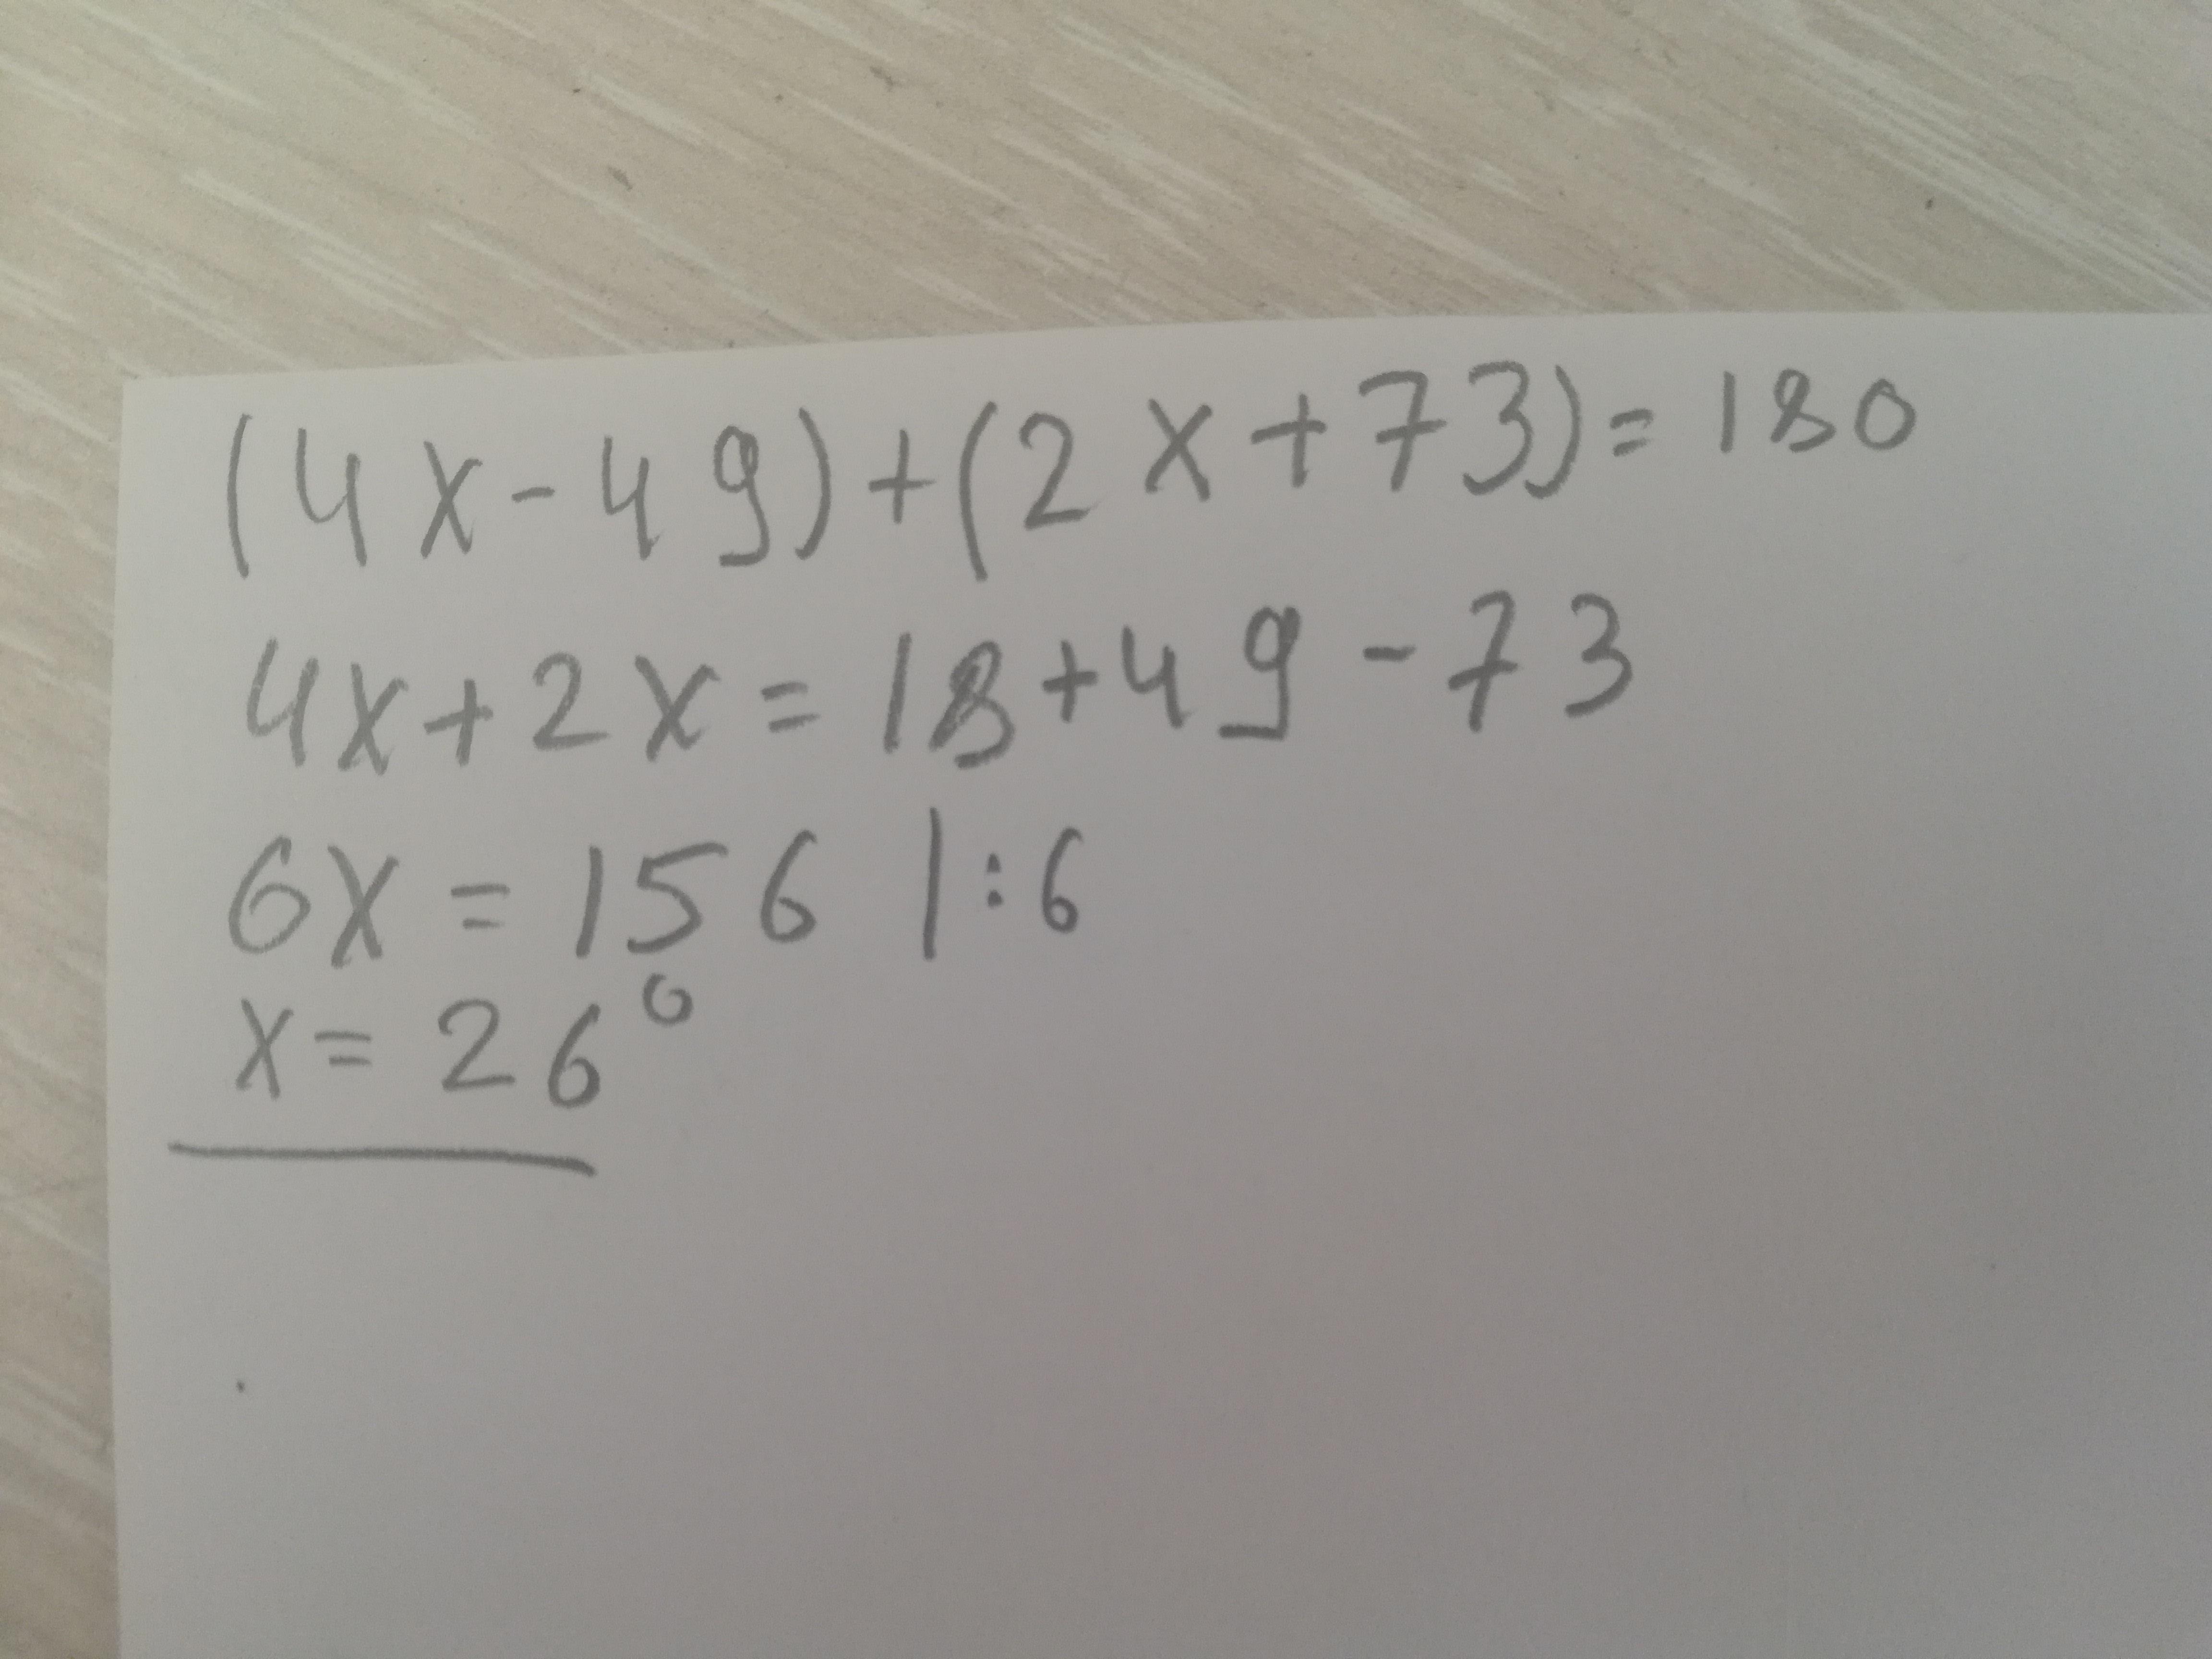 (4x-49)+(2x+73)=180
4x+2x=18+49-73
6x=156 |:6
x=26°